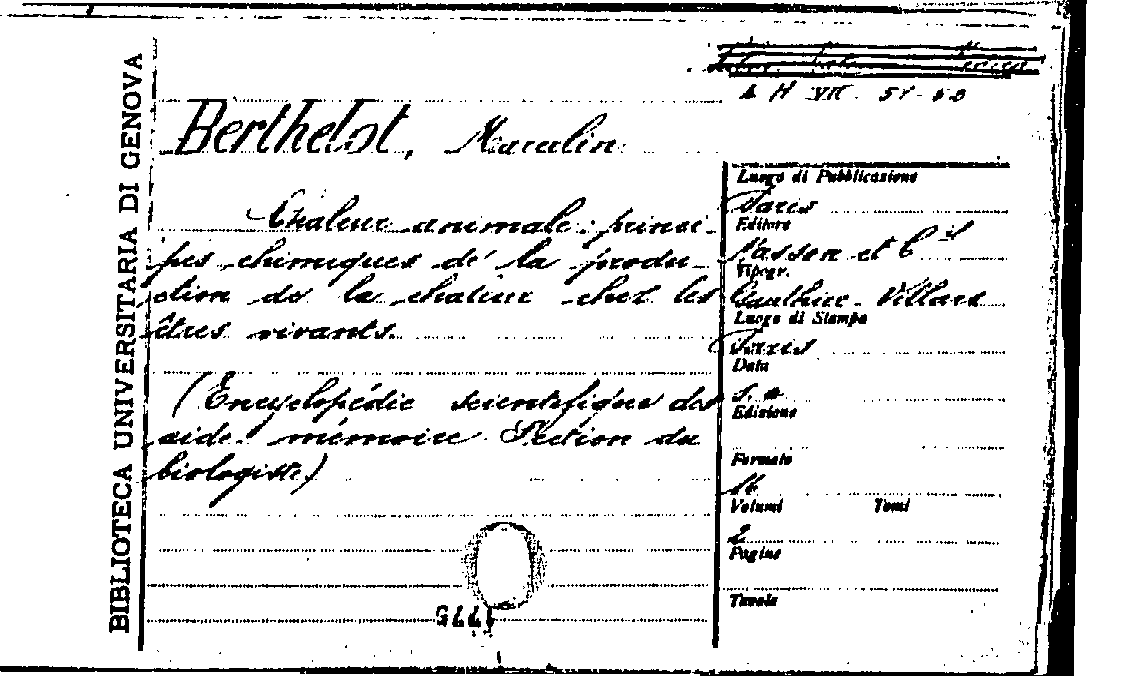 BIBLIOTECA UNIVERSITARIA DI GENOVA
A H VII. 51-
Berthelot, Marcelin
Chaleur animale: princi-
pes chimiques de la produ-
ction de la chaleur chez les
êtres vivants.
(Encyclopédie scientifique des
aide-mémoire Section du
biologiste)
Luogo di Pubblicazione
Paris
Editore
Masson et C.ie
Tipogr.
Gauthier-Villars
Luogo di Stampa
Paris
Data
s. a.
Edizione
Formato
16
Volumi Tomi
2
Pagine
Tavole